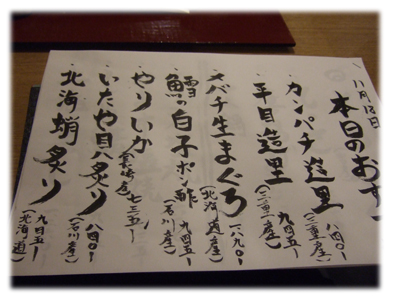 11月13日
本日のおす
・カンパチ造里 八四〇ー
(三重産)
・平目造里 九四五ー
(三重産)
・メバチ生まぐろ 一八九〇ー
(北海道産)
・鱈の白子ポン酢 九四五ー
(石川産)
・やりいか 七三五ー
・いたや貝炙り 八四〇ー
(石川産)
・北海蛸炙り 九四五ー
(北海道)